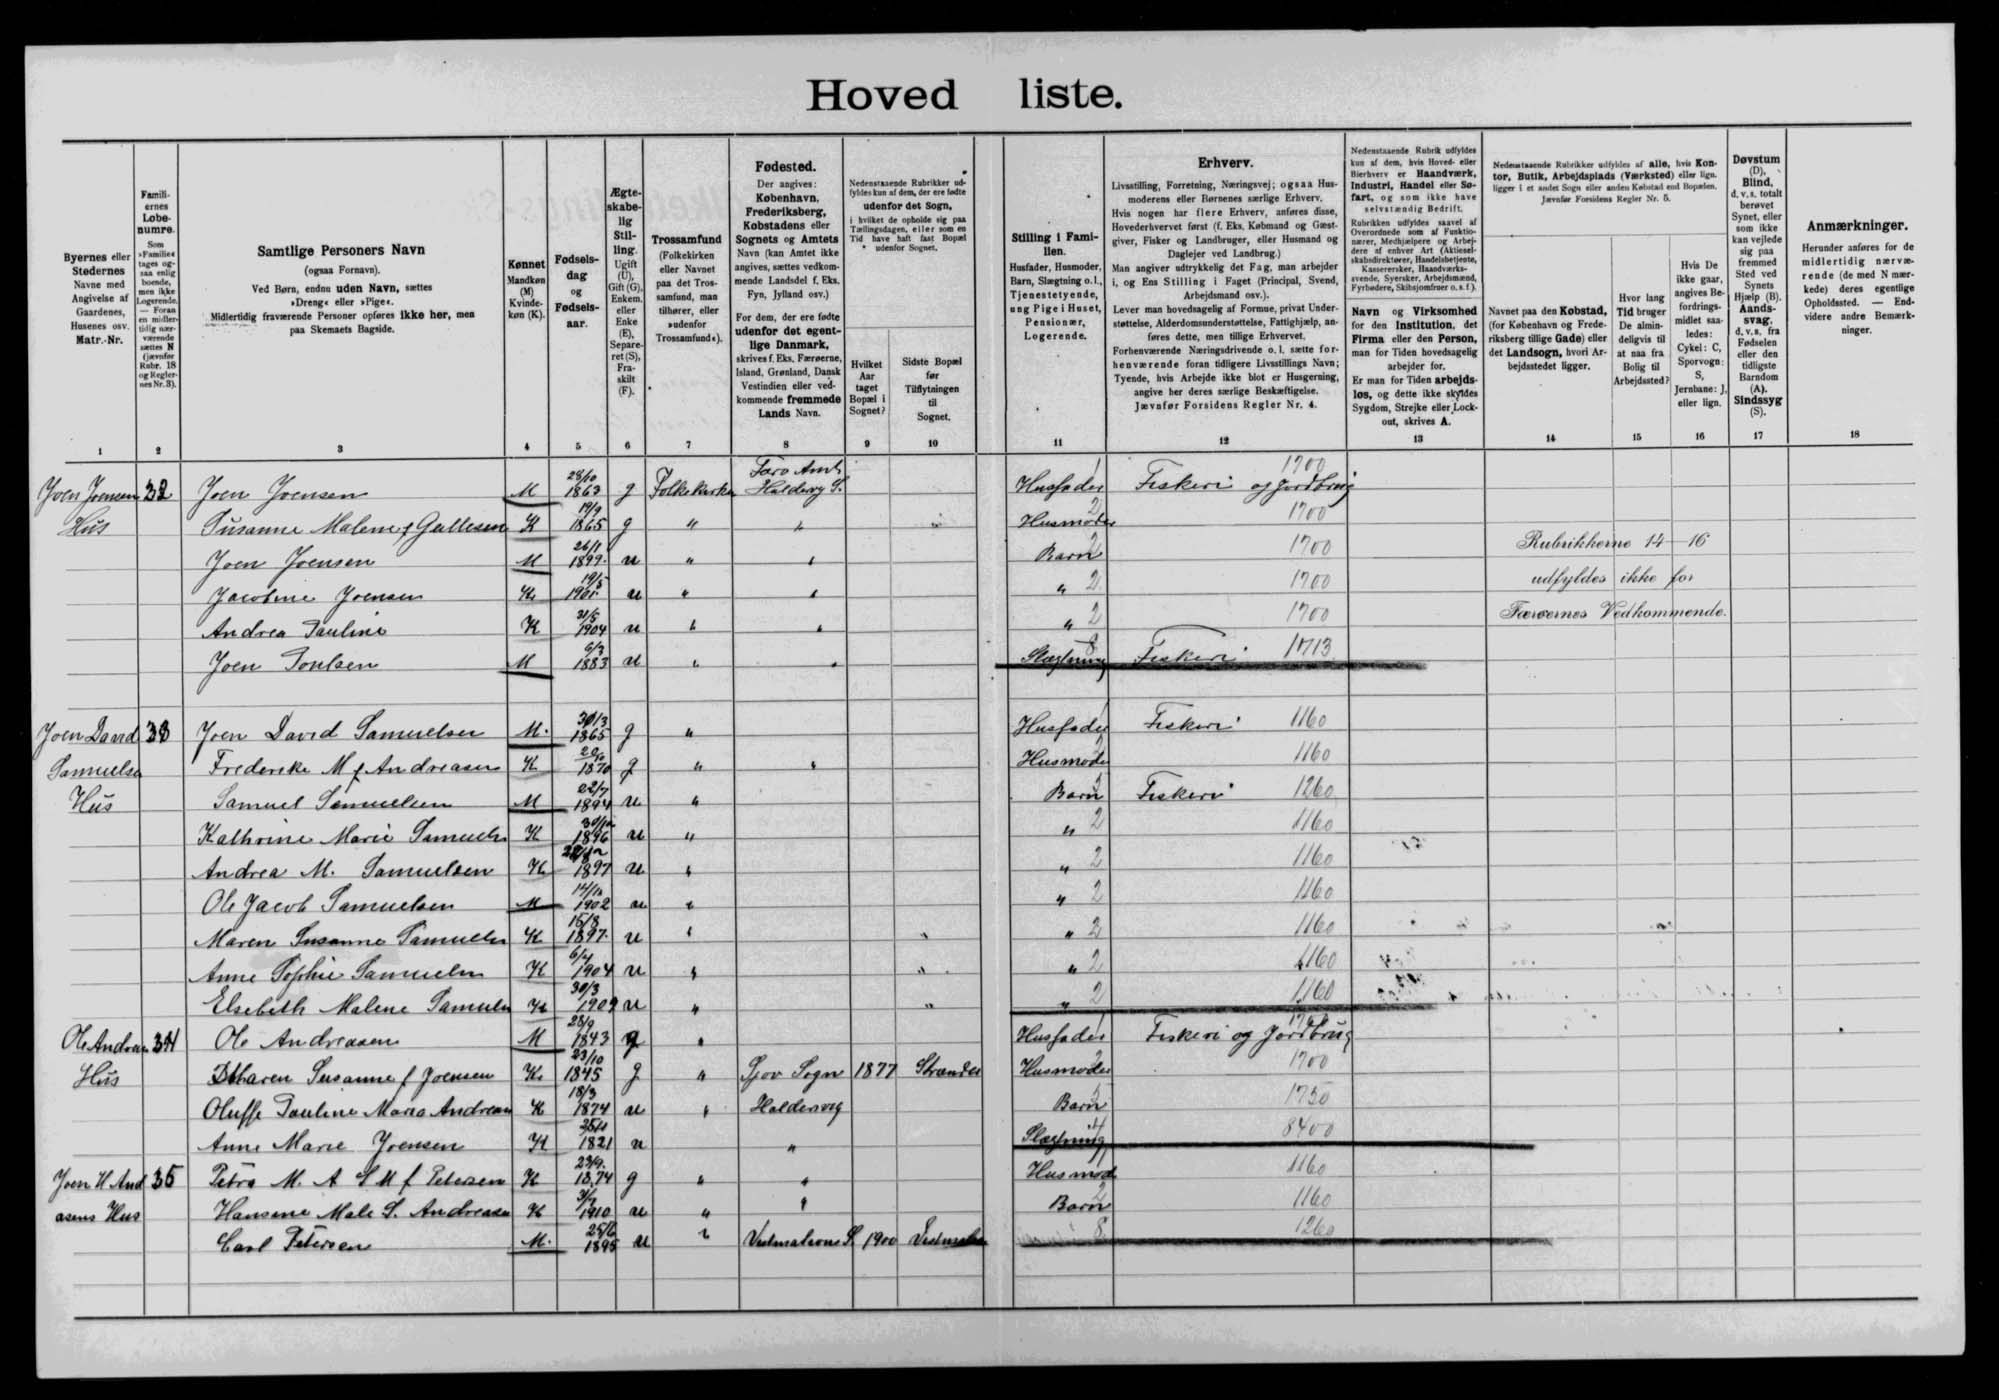 Hoved liste.
Byernes eller Stedernes Navne med Angivelse af Gaardenes, Husenes osv. Matr.-Nr.
Familiernes Løbenumre. Som »Familie« tages ogsaa enlig boende, men ikke Logerende. — Foran en midlertidig nærværende sættes N (jævnfør Rubr. 18 og Reglernes Nr. 3).
Samtlige Personers Navn (ogsaa Fornavn). Ved Børn, endnu uden Navn, sættes »Dreng« eller »Pige«. Midlertidig fraværende Personer opføres ikke her, men paa Skemaets Bagside.
Kønnet Mandkøn (M) Kvindekøn (K).
Fødselsdag og Fødselsaar.
Ægteskabelig Stilling. Ugift (U), Gift (G), Enkem. eller Enke (E), Separeret (S), Fraskilt (F).
Trossamfund (Folkekirken eller Navnet paa det Trossamfund, man tilhører, eller »udenfor Trossamfund«).
Fødested. Der angives: København, Frederiksberg, Købstadens eller Sognets og Amtets Navn (kan Amtet ikke angives, sættes vedkommende Landsdel f. Eks. Fyn, Jylland osv.) For dem, der ere fødte udenfor det egentlige Danmark, skrives f. Eks. Færøerne, Island, Grønland, Dansk Vestindien eller vedkommende fremmede Lands Navn.
Nedenstaaende Rubrikker udfyldes kun af dem, der ere fødte udenfor det Sogn, i hvilket de opholde sig paa Tællingsdagen, eller som en Tid have haft fast Bopæl udenfor Sognet.
Hvilket Aar taget Bopæl i Sognet?
Sidste Bopæl før Tilflytningen til Sognet.
Stilling i Familien. Husfader, Husmoder, Barn, Slægtning o.l., Tjenestetyende, ung Pige i Huset, Pensionær, Logerende.
Erhverv. Livsstilling, Forretning, Næringsvej; ogsaa Husmoderens eller Børnenes særlige Erhverv. Hvis nogen har flere Erhverv, anføres disse, Hovederhvervet først (f. Eks. Købmand og Gæstgiver, Fisker og Landbruger, eller Husmand og Daglejer ved Landbrug.) Man angiver udtrykkelig det Fag, man arbejder i, og Ens Stilling i Faget (Principal, Svend, Arbejdsmand osv.). Lever man hovedsagelig af Formue, privat Understøttelse, Alderdomsunderstøttelse, Fattighjælp, anføres dette, men tillige Erhvervet. Forhenværende Næringsdrivende o. l. sætte forhenværende foran tidligere Livsstillings Navn; Tyende, hvis Arbejde ikke blot er Husgerning, angive her deres særlige Beskæftigelse. Jævnfør Forsidens Regler Nr. 4.
Nedenstaaende Rubrik udfyldes kun af dem, hvis Hoved- eller Bierhverv er Haandværk, Industri, Handel eller Søfart, og som ikke have selvstændig Bedrift.
Rubrikken udfyldes saavel af Overordnede som af Funktionærer, Medhjælpere og Arbejdere af enhver Art (Aktieselskabsdirektører, Handelsbetjente, Kasserersker, Haandværkssvende, Syersker, Arbejdsmænd, Fyrbødere, Skibsjomfruer o. s. f.).
Navn og Virksomhed for den Institution, det Firma eller den Person, man for Tiden hovedsagelig arbejder for. Er man for Tiden arbejdsløs, og dette ikke skyldes Sygdom, Strejke eller Lockout, skrives A.
Nedenstaaende Rubrikker udfyldes af alle, hvis Kontor, Butik, Arbejdsplads (Værksted) eller lign. ligger i et andet Sogn eller anden Købstad end Bopælen. Jævnfør Forsidens Regler Nr. 5.
Navnet paa den Købstad, (for København og Frederiksberg tillige Gade) eller det Landsogn, hvori Arbejdsstedet ligger.
Hvor lang Tid bruger De almindeligvis til at naa fra Bolig til Arbejdssted?
Hvis De ikke gaar, angives Befordringsmidlet saaledes: Cykel: C, Sporvogn: S, Jernbane: J, eller lign.
Døvstum (D), Blind, d. v. s. totalt berøvet Synet, eller som ikke kan vejlede sig paa fremmed Sted ved Synets Hjælp (B). Aandssvag, d. v. s. fra Fødselen eller den tidligste Barndom (A). Sindssyg (S).
Anmærkninger. Herunder anføres for de midlertidig nærværende (de med N mærkede) deres egentlige Opholdssted. — Endvidere andre Bemærkninger.
1 2 3 4 5 6 7 8 9 10 11 12 13 14 15 16 17 18
Joen Joensen 32 Joen Joensen M 28/10 1863 g Folkekirke Færo Amt Haldervig S. Husfader 1 Fiskeri og Jordbrug 1700
Hus Susanne Malene f Gullesen K 19/9 1865 g " " Husmoder 2 1700
Joen Joensen M 26/1 1899 u " " Barn 2 1700 Rubrikkerne 14-16
Jacobine Joensen K 19/5 1901 u " " " 2 1700 udfyldes ikke for
Andrea Pauline K 21/5 1904 u " " " 2 1700 Færøernes Vedkommende.
Joen Poulsen M 6/3 1883 u " " Slægtning 8 Fiskeri 1713
Joen David 33 Joen David Samuelsen M. 30/3 1865 g " Husfader Fiskeri 1160
Samuelse Frederike M f Andreasen K 1870 g " " Husmoder 2 1160
Hus Samuel Samuelsen M 22/7 1894 u " Barn Fiskeri 1260
Kathrine Marie Samuels K 30/10 1896 u " " 2 1160
Andrea M. Samuelsen K 1897 u " " 2 1160
Ole Jacob Samuelsen M 14/10 1902 u " " 2 1160
Maren Susanne Samuels K 15/8 1897 u " " 2 1160
Anne Sophie Samuelsn K 6/4 1904 u " " 2 1160
Elsebeth Malene Samuels K 30/3 1909 u " " 2 1160
Ole Andreas 34 Ole Andreasen M 28/9 1843 g " Husfader 1 Fiskeri og Jordbrug
Hus Maren Susanne f Joensen K 23/10 1845 g " Sjov Sogn 1877 Strander Husmoder 2 1700
Oluffe Pauline Maria Andreas K 18/3 1874 u " Haldersvig Barn 1750
Anne Marie Joensen K 1821 u " Slægtning 4 8400
Joen H And 35 Petra M. A S M f Petersen K 23/9 1874 g " " Husmod 1160
asens Hus Hansine Male S. Andreasen K 3/7 1910 u " " Barn 2 1160
Carl Petersen M. 25/6 1895 u " Vestmanna S. 1900 8 1260